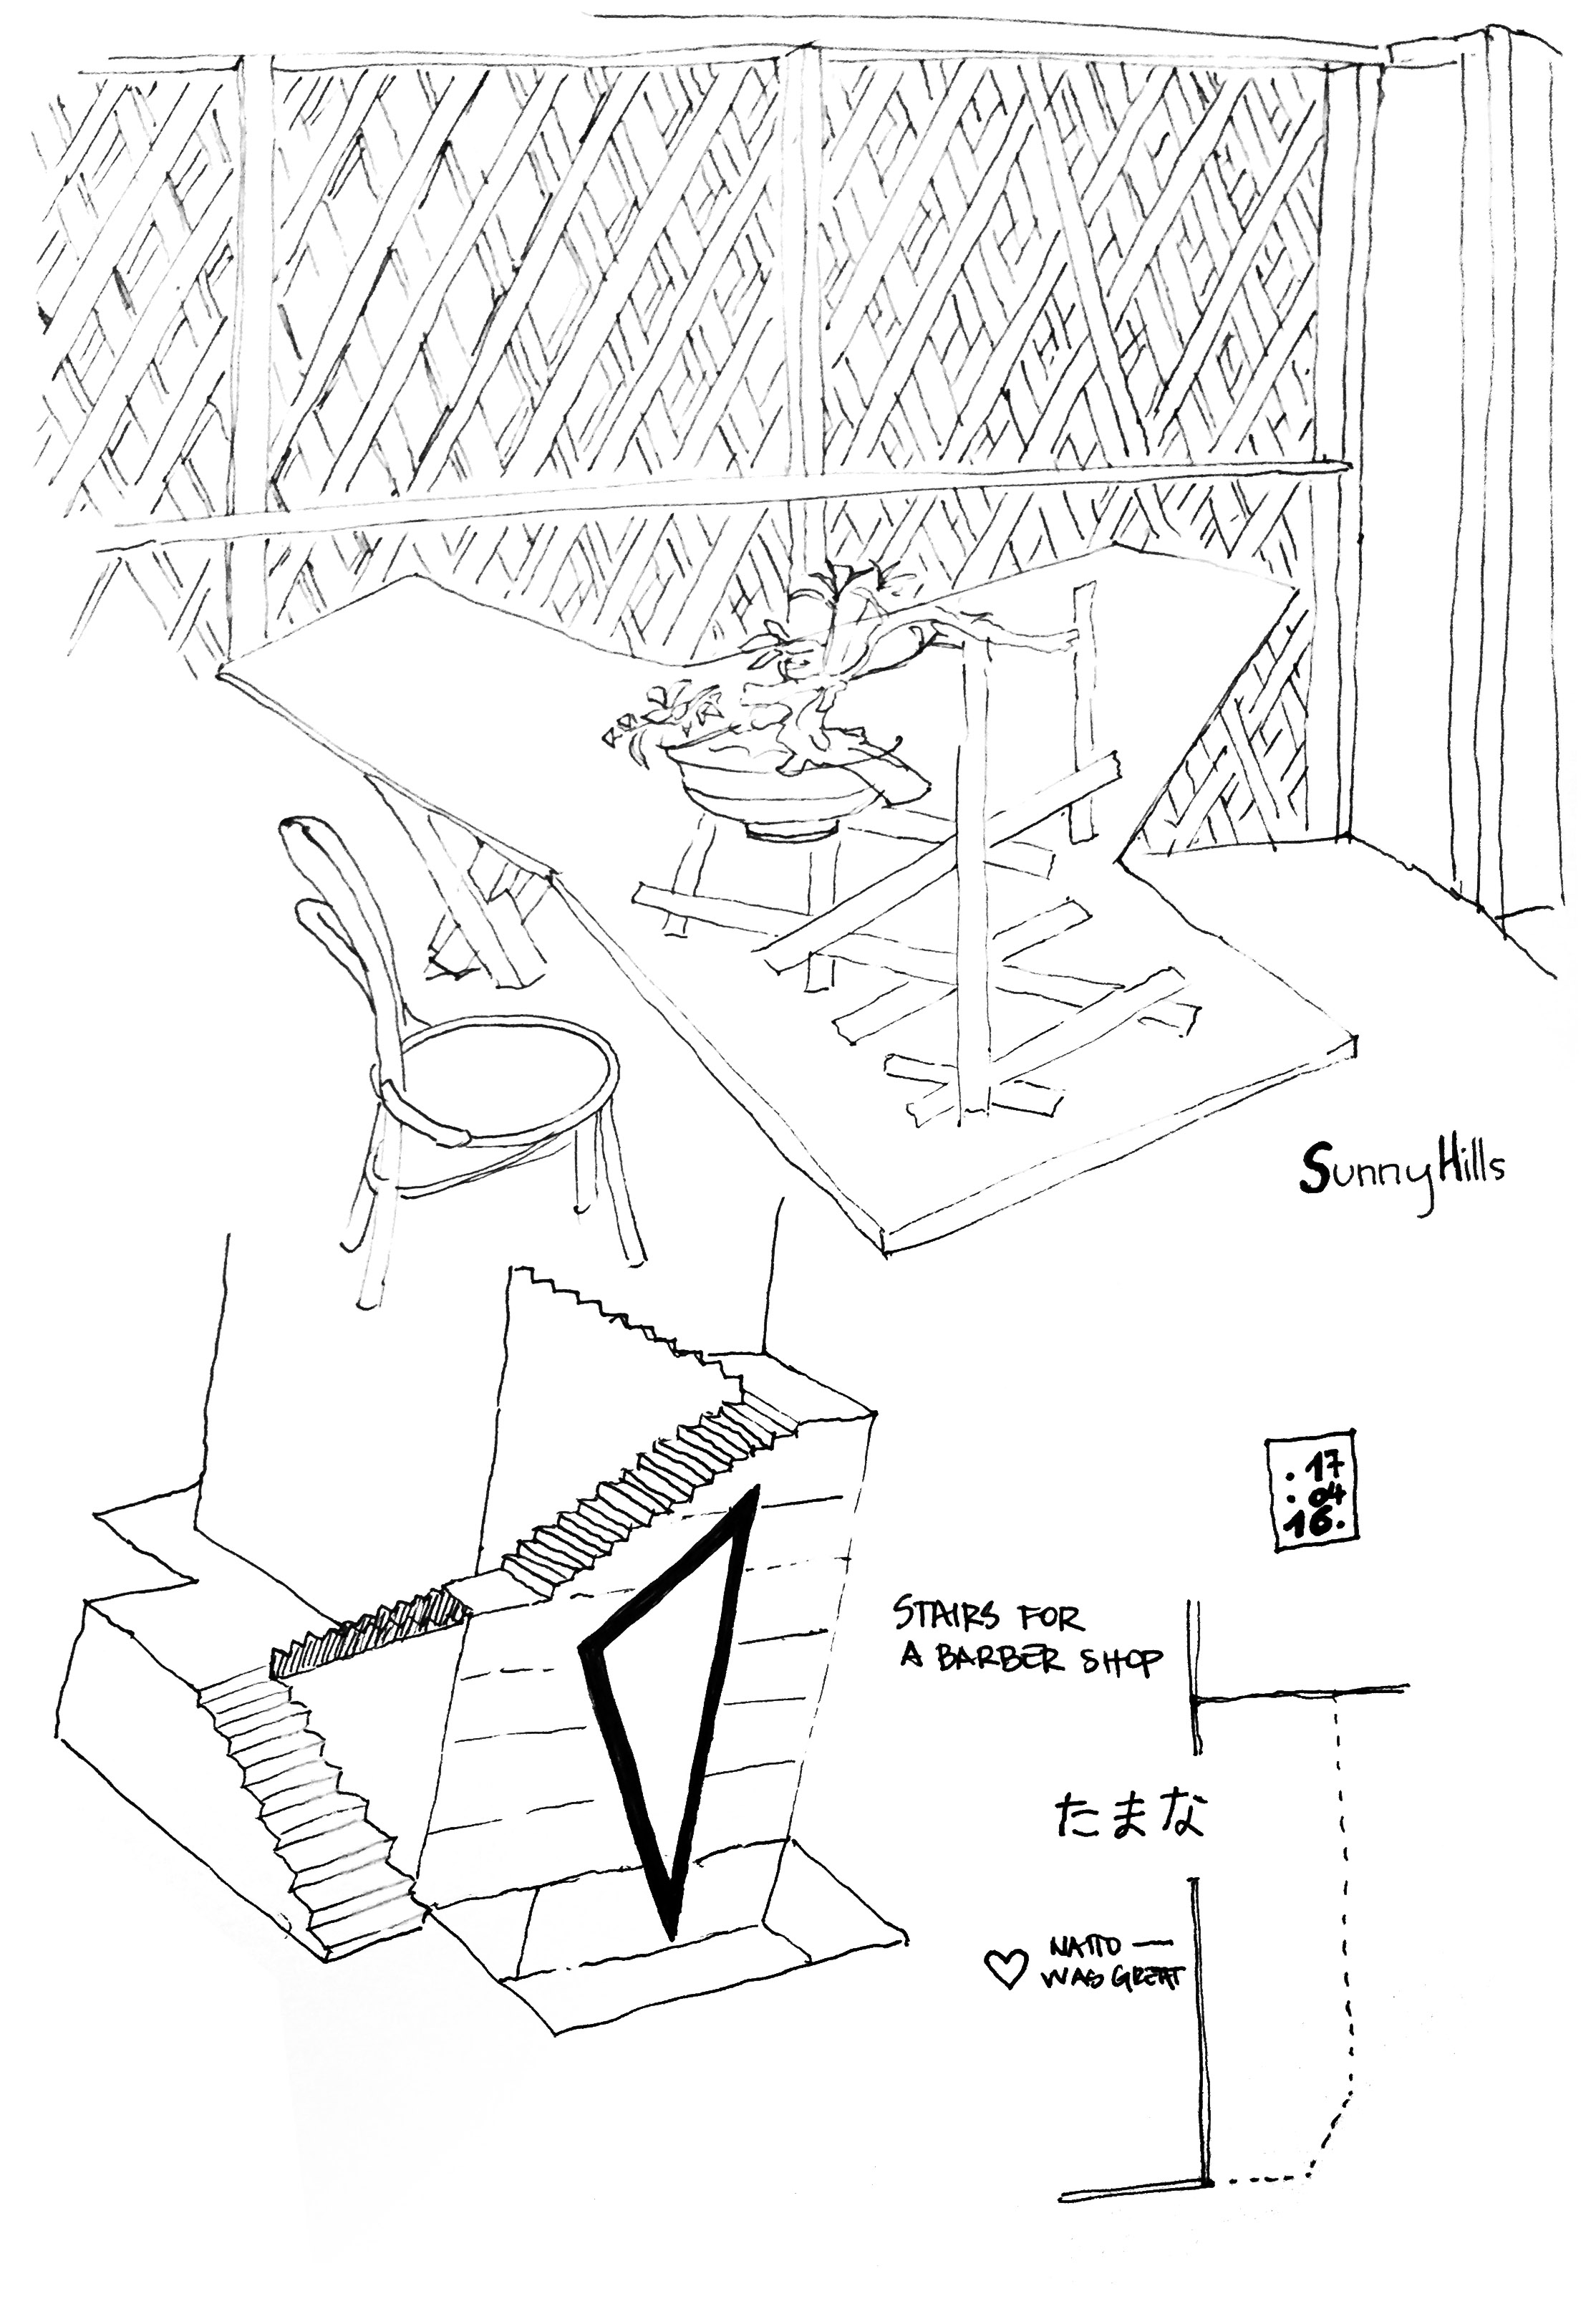 SunnyHills
. 17
. 04
16.
STAIRS FOR
A BARBER SHOP
たまな
♡ NATTO —
WAS GREAT